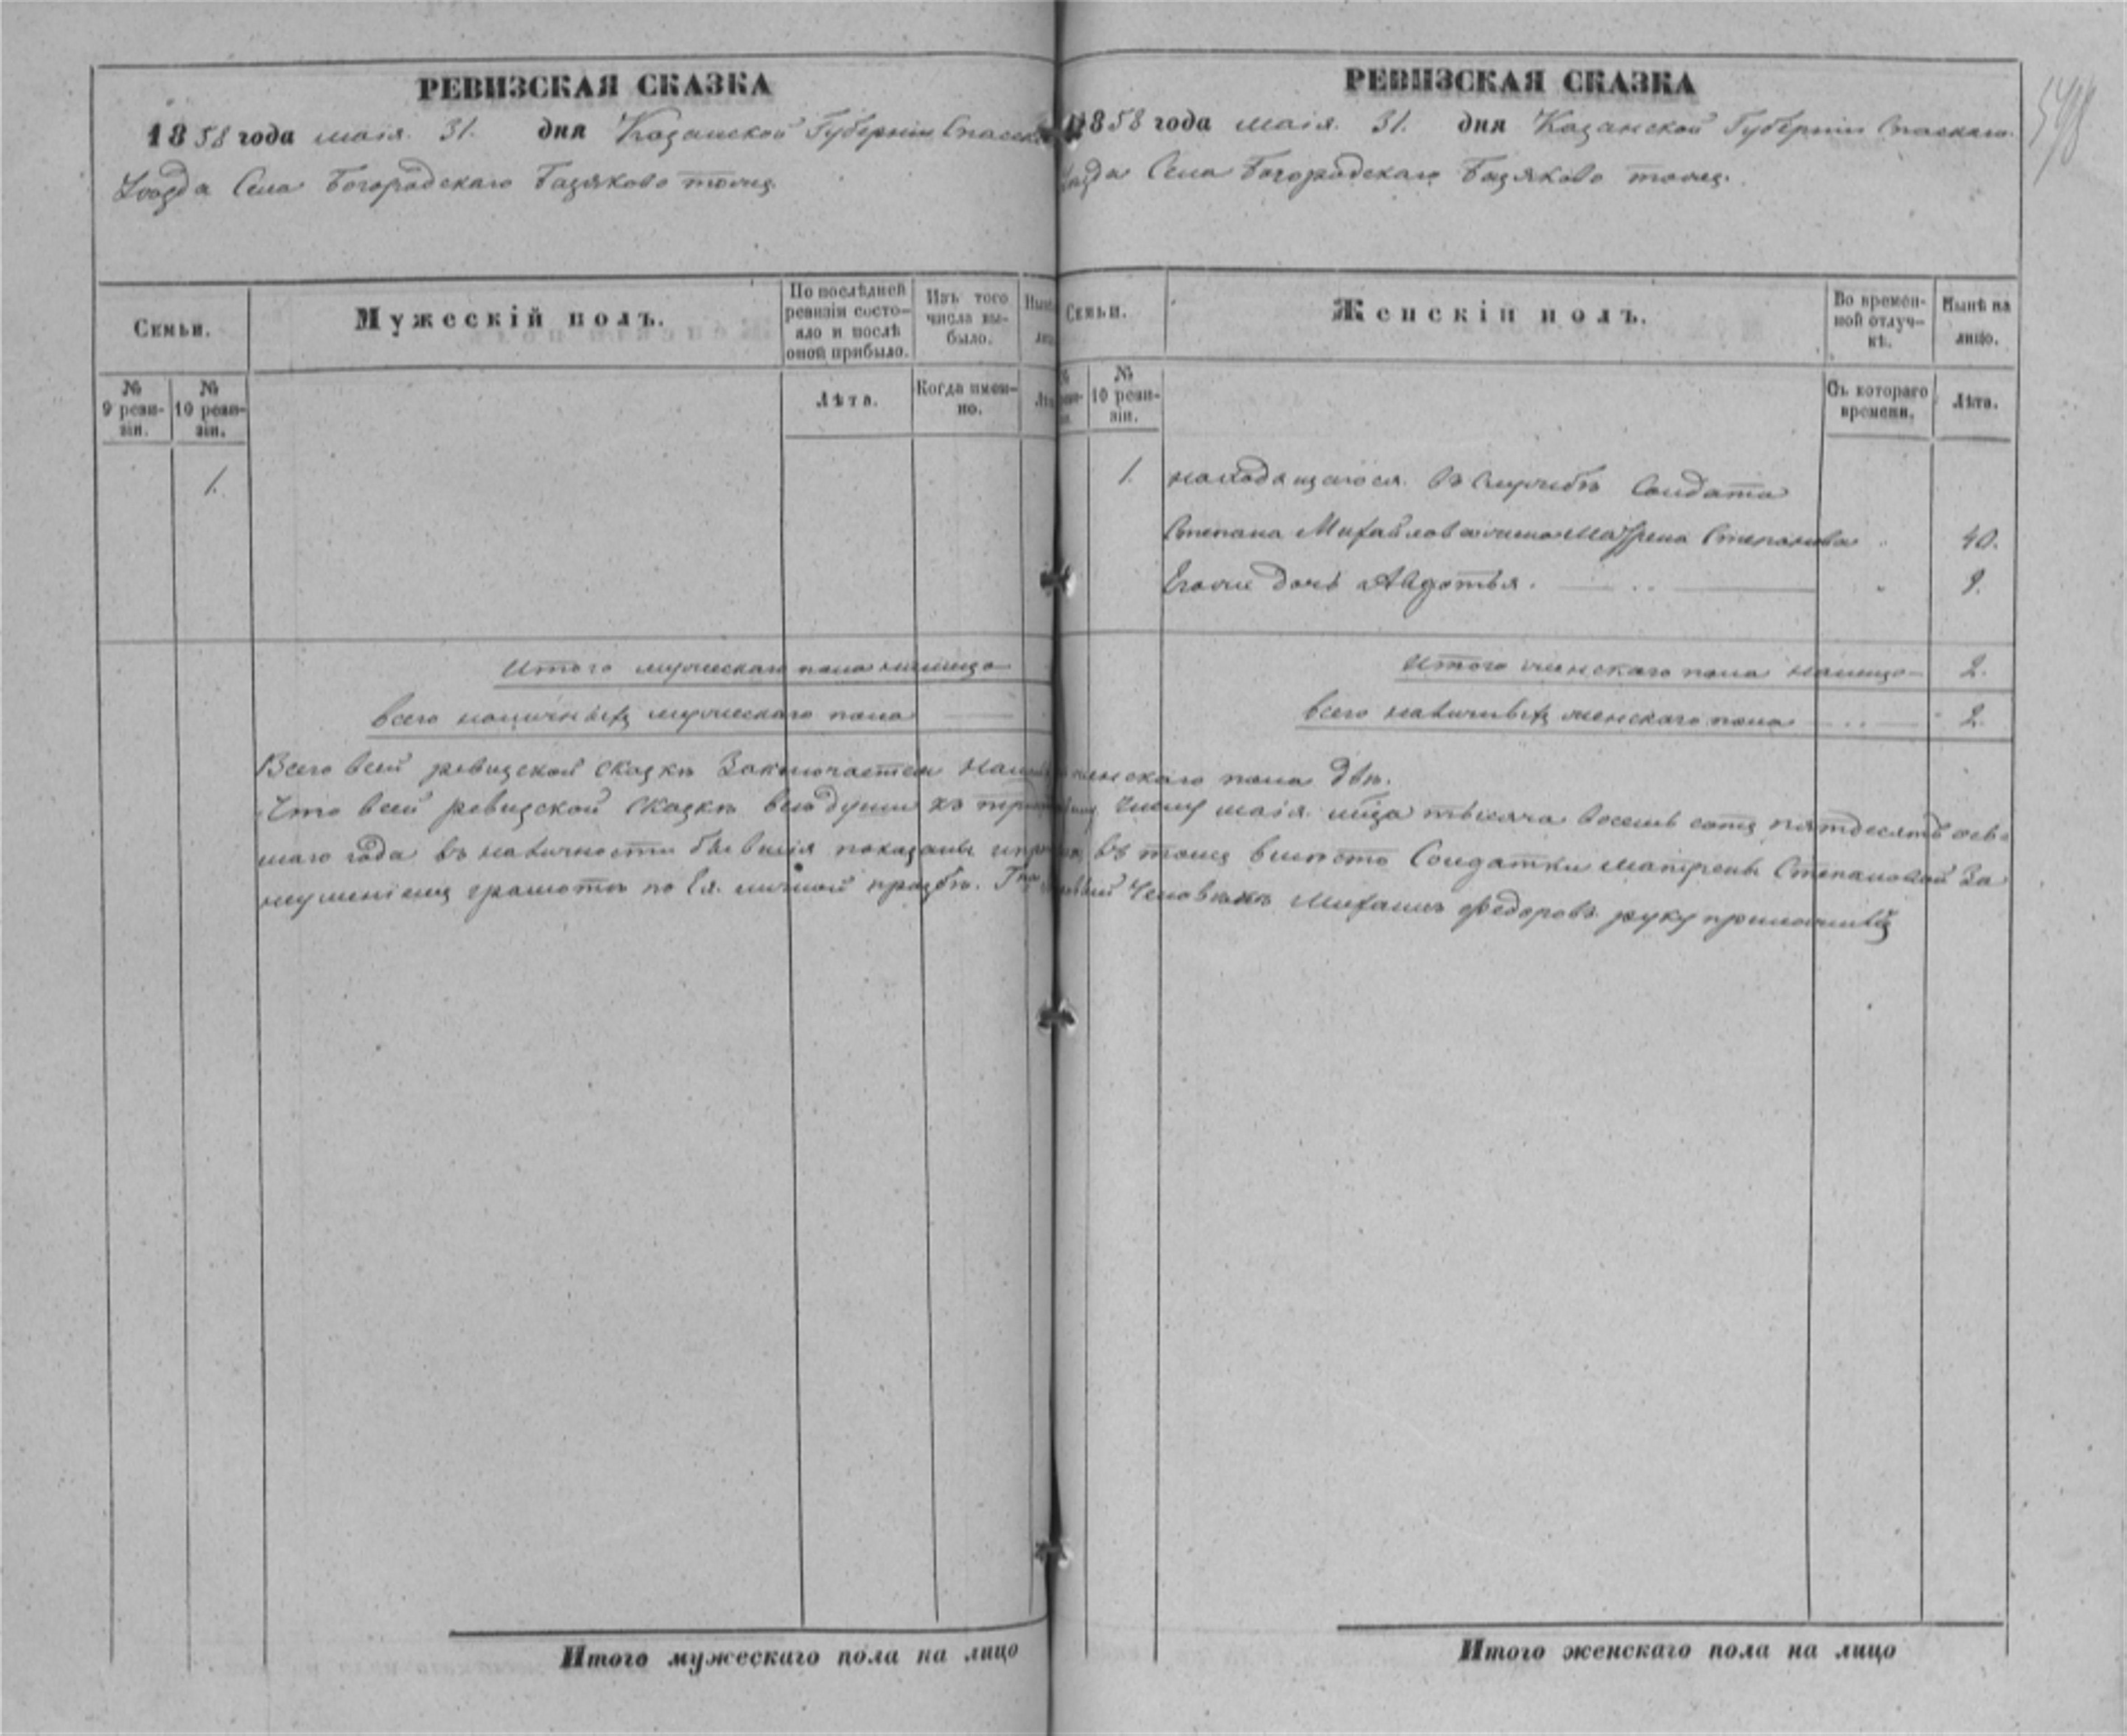 РЕВИЗСКАЯ СКАЗКА
1858 года маія 31. дня Казанской Губерніи
Уѣзда Села Богородскаго Базяково тожъ
Семьи.
Мужескій полъ.
По послѣдней ревизіи состояло и послѣ оной прибыло.
Изъ того числа выбыло.
№ 9 ревизіи.
№ 10 ревизіи.
Лѣта.
Когда именно.
1.
Итого мужескаго пола налицо
Всего наличныхъ мужескаго пола
Итого мужескаго пола на лицо
РЕВИЗСКАЯ СКАЗКА
1858 года маія 31. дня Казанской Губерніи Спаскаго
Уѣзда Села Богородскаго Базяково тожъ.
Семьи.
Женскій полъ.
Во временной отлучкѣ.
Нынѣ на лицо.
№ 10 ревизіи.
Съ котораго времени.
Лѣта.
1. находящагося въ службѣ Солдата
Степана Михайлова жена Матрена Степанова 40.
Егоже дочь Авдотья. 9.
Итого женскаго пола налицо 2.
Всего наличныхъ женскаго пола 2.
Всего всей ревизской сказкѣ Заключается женскаго пола двѣ.
Что всей ревизской Сказкѣ всѣ души къ числу маія мца тысяча восемь сотъ пятдесятъ ось
маго года въ наличности бывшія показаны въ томъ вмѣсто Солдатки матрены Степановой За
неуменіемъ грамотѣ по Ея личной прозбѣ. Человѣкъ Михаилъ Федоровъ руку приложилъ
Итого женскаго пола на лицо